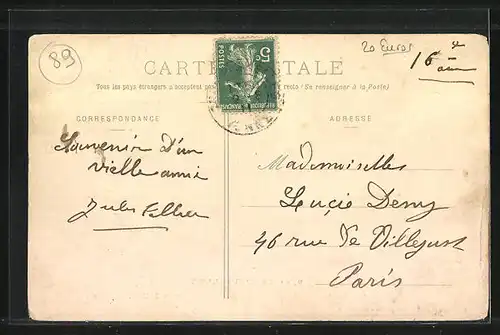 89
20 Euros
16 e
CARTE POSTALE
Tous les pays étrangers n'acceptent pas recto (Se renseigner à la Poste)
CORRESPONDANCE
ADRESSE
5c
POSTES
REPUBLIQUE FRANÇAISE
Souvenir d'un
vielle ami
Jules
Mademoiselles
Lucie Demy
46 rue de Villejust
Paris